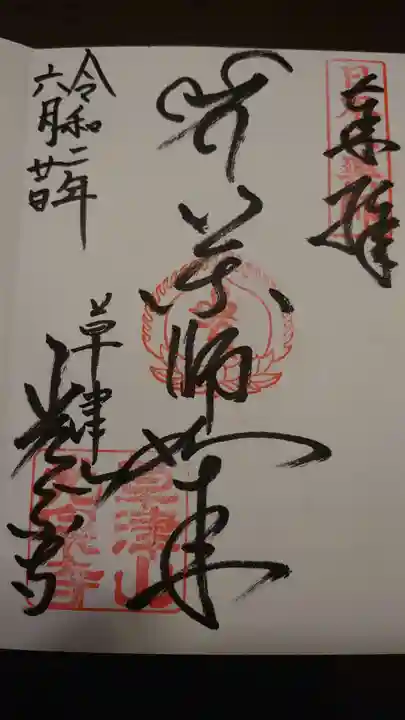 奉拝
薬師如来
草津山
光泉寺
草津
光泉寺
令和二年
六月廿日